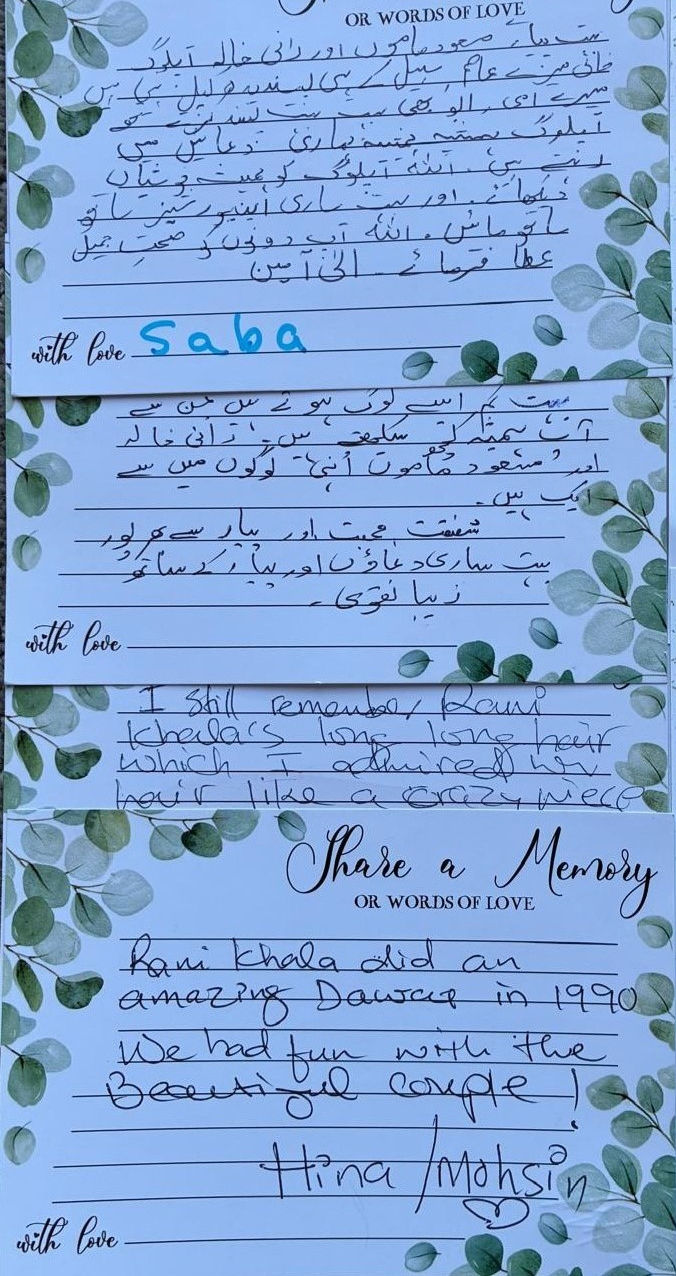 OR WORDS OF LOVE
بہت پیارے مسعود ماموں اور رانی خالہ آپلوگ
میرے امی، ابو بھی بہت بہت پسند کرتے تھے
آپلوگ ہمیشہ ہمیشہ ہماری دعاؤں میں
رہتے ہیں، اللہ آپلوگ کو ہمیشہ خوشیاں
دکھائے، اور بہت ساری اینیورسریز ساتھ
ساتھ منائیں، اللہ آپ دونوں کو صحت جمیل
عطا فرمائے۔ الٰہی آمین
with love saba
بہت کم ایسے لوگ ہوتے ہیں جن سے
آپ ہمیشہ کچھ سیکھتے ہیں۔ رانی خالہ
اور مسعود ماموں اُنہی لوگوں میں سے
ایک ہیں۔
شفقت، محبت اور پیار سے بھرپور
بہت ساری دعاؤں اور پیار کے ساتھ
زیبا نقوی۔
with love
I still remember Rani
Khala's long long hair
which I admired her
hair like a crazy niece
Share a Memory
OR WORDS OF LOVE
Rani Khala did an
amazing Dawat in 1990
We had fun with the
Beautiful couple!
Hina/Mohsin
with love